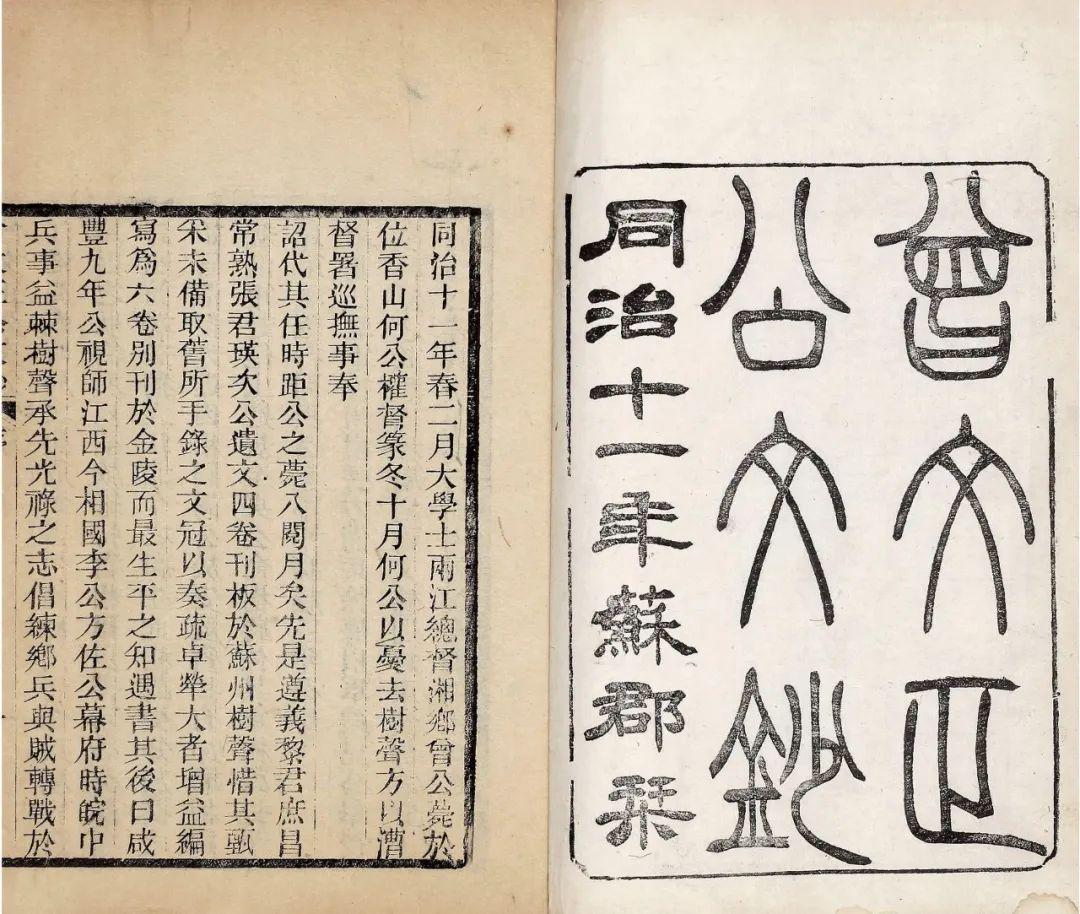 曾文正
公文鈔
同治十一年蘇郡栞
同治十一年春二月大學士兩江總督湘鄉曾公薨於
位香山何公權督篆冬十月何公以憂去樹聲方以漕
督署巡撫事奉
詔代其任時距公之薨八閱月矣先是遵義黎君庶昌
常熟張君瑛次公遺文四卷刊板於蘇州樹聲惜其甄
采未備取舊所手錄之文冠以奏疏卓犖大者增益編
寫爲六卷別刊於金陵而最生平之知遇書其後曰咸
豐九年公視師江西今相國李公方佐公幕府時皖中
兵事益棘樹聲承先光祿之志倡練鄉兵與賊轉戰於